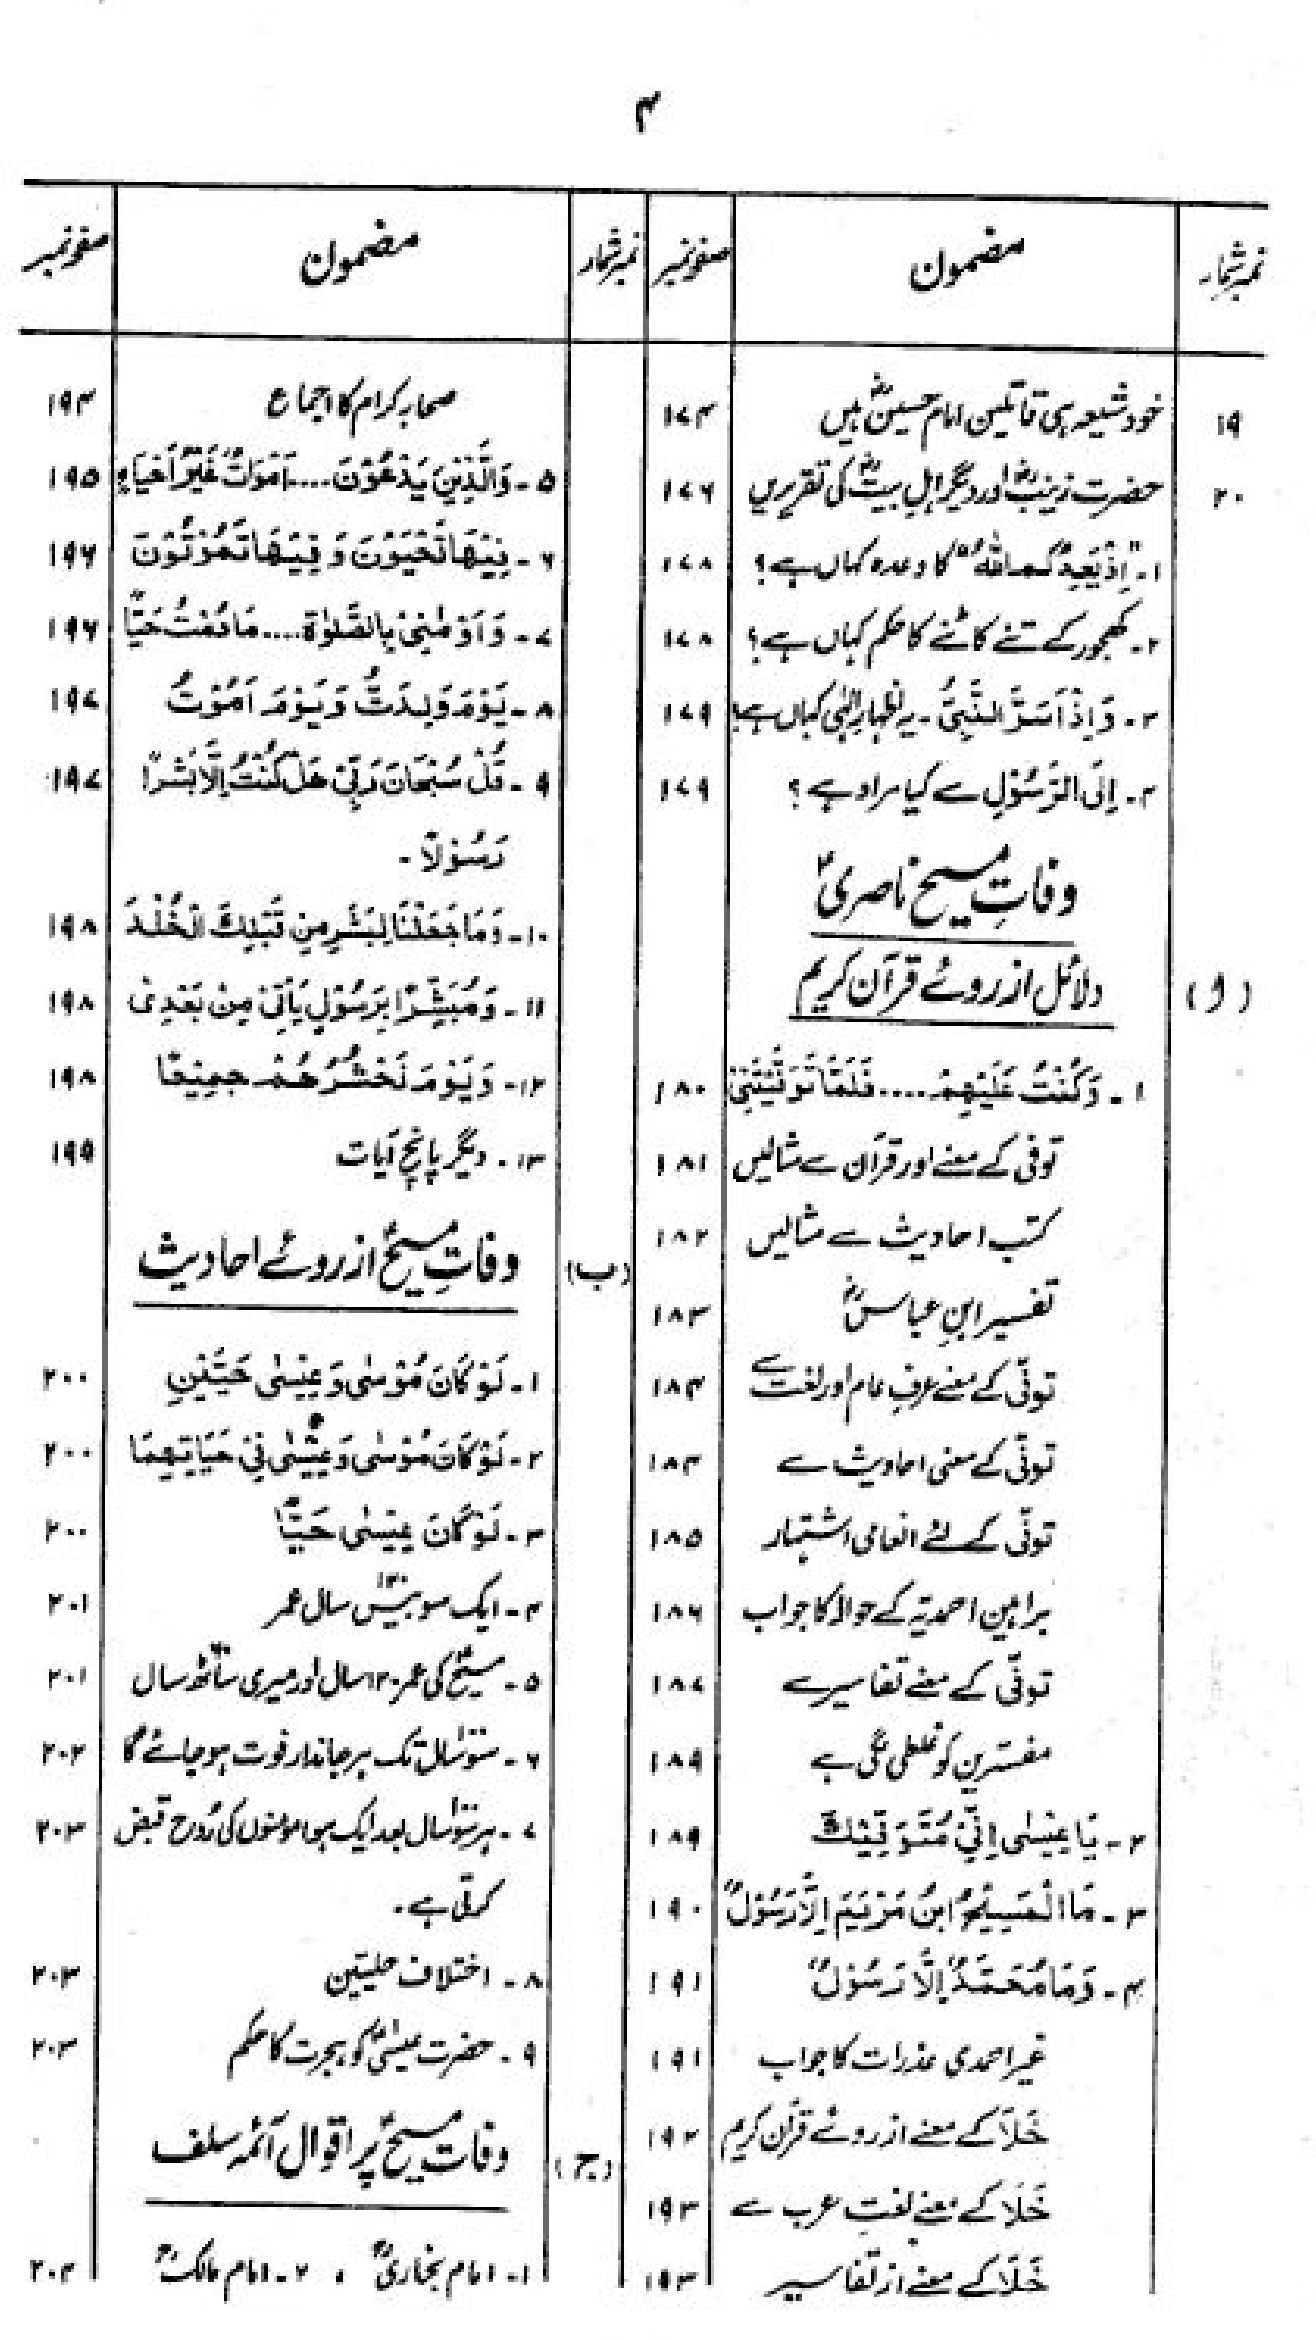 ۴
نمبر شمار مضمون صفحہ نمبر
۱۹ خود شیعہ ہی قاتلین امام حسینؓ ہیں ۱۷۴
۲۰ حضرت زینبؓ اور دیگر اہلِ بیتؓ کی تقریریں ۱۷۶
۱۔ اِذْ یَعِدُکُمُ اللّٰہُ کا وعدہ کہاں ہے؟ ۱۷۸
۲۔ کھجور کے تنے کاٹنے کا حکم کہاں ہے؟ ۱۷۸
۳۔ وَاِذْ اَسَرَّ النَّبِیُّ ۔ یہ اظہارِ الٰہی کہاں ہے؟ ۱۷۹
۴۔ اِلَی الرَّسُوْلِ سے کیا مراد ہے؟ ۱۷۹
وفاتِ مسیح ناصریؑ
(ا) دلائل از روئے قرآن کریم
۱۔ وَکُنْتُ عَلَیْہِمْ .... فَلَمَّا تَوَفَّیْتَنِیْ ۱۸۰
توفی کے معنے اور قرآن سے مثالیں ۱۸۱
کتب احادیث سے مثالیں ۱۸۲
تفسیر ابنِ عباسؓ ۱۸۳
توفّی کے معنے عرفِ عام اور لغت سے ۱۸۴
توفّی کے معنی احادیث سے ۱۸۴
توفّی کے لئے انعامی اشتہار ۱۸۵
براہین احمدیہ کے حوالہ کا جواب ۱۸۶
توفّی کے معنے تفاسیر سے ۱۸۷
مفسّرین کو غلطی لگی ہے ۱۸۹
۲۔ یَا عِیْسٰی اِنِّیْ مُتَوَفِّیْکَ ۱۸۹
۳۔ مَا الْمَسِیْحُ ابْنُ مَرْیَمَ اِلَّا رَسُوْلٌ ۱۹۰
۴۔ وَمَا مُحَمَّدٌ اِلَّا رَسُوْلٌ ۱۹۱
غیر احمدی عذرات کا جواب ۱۹۱
خَلَا کے معنے از روئے قرآن کریم ۱۹۲
خَلَا کے معنے لغتِ عرب سے ۱۹۳
خَلَا کے معنے از تفاسیر ۱۹۳
نمبر شمار مضمون صفحہ نمبر
صحابہ کرام کا اجماع ۱۹۴
۵۔ وَالَّذِیْنَ یَدْعُوْنَ .... اَمْوَاتٌ غَیْرُ اَحْیَاءٍ ۱۹۵
۶۔ فِیْہَا تَحْیَوْنَ وَ فِیْہَا تَمُوْتُوْنَ ۱۹۶
۷۔ وَ اَوْصٰنِیْ بِالصَّلٰوۃِ .... مَا دُمْتُ حَیًّا ۱۹۶
۸۔ یَوْمَ وُلِدْتُّ وَ یَوْمَ اَمُوْتُ ۱۹۷
۹۔ قُلْ سُبْحَانَ رَبِّیْ ھَلْ کُنْتُ اِلَّا بَشَرًا ۱۹۷
رَسُوْلًا ۔
۱۰۔ وَمَا جَعَلْنَا لِبَشَرٍ مِنْ قَبْلِکَ الْخُلْدَ ۱۹۸
۱۱۔ وَمُبَشِّرًا بِرَسُوْلٍ یَأْتِیْ مِنْ بَعْدِیْ ۱۹۸
۱۲۔ وَ یَوْمَ نَحْشُرُھُمْ جَمِیْعًا ۱۹۸
۱۳۔ دیگر پانچ آیات ۱۹۹
(ب) وفاتِ مسیحؑ از روئے احادیث
۱۔ لَوْ کَانَ مُوْسٰی وَ عِیْسٰی حَیَّیْنِ ۲۰۰
۲۔ لَوْ کَانَ مُوْسٰی وَ عِیْسٰی فِیْ حَیَاتِہِمَا ۲۰۰
۳۔ لَوْ کَانَ عِیْسٰی حَیًّا ۲۰۰
۴۔ ایک سو بیس ۱۲۰ سال عمر ۲۰۱
۵۔ مسیحؑ کی عمر ۱۲۰ سال اور میری ساٹھ سال ۲۰۱
۶۔ سو سال تک ہر جاندار فوت ہو جائے گا ۲۰۲
۷۔ ہر سو سال بعد ایک ہوا مومنوں کی رُوح قبض ۲۰۳
کرتی ہے۔
۸۔ اختلاف حلیتین ۲۰۳
۹۔ حضرت عیسیٰؑ کو ہجرت کا حکم ۲۰۳
(ج) وفات مسیحؑ پر اقوال ائمہ سلف
۱۔ امام بخاریؒ ، ۲۔ امام مالکؒ ۲۰۴